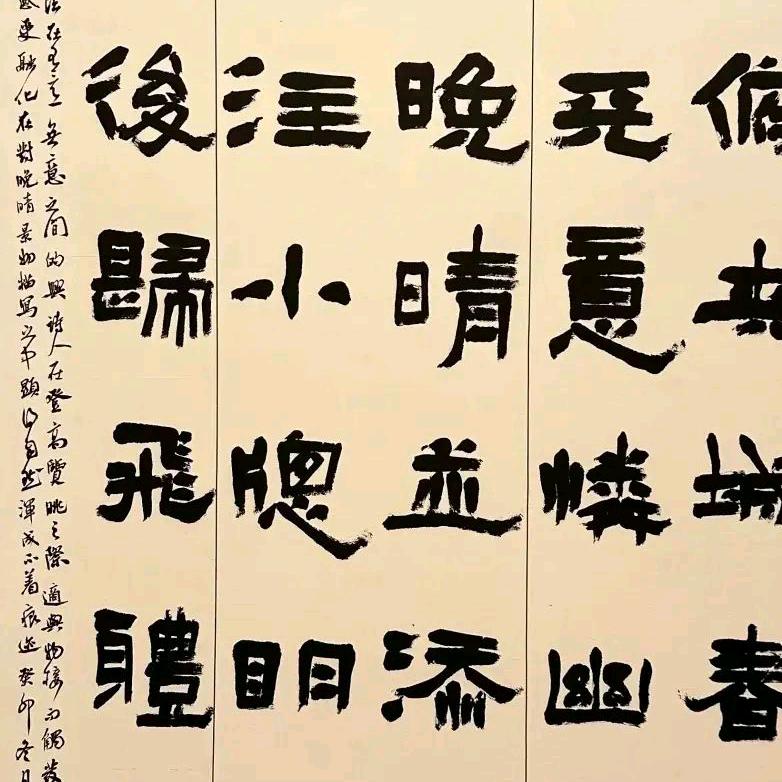 俯夾城春
天意憐幽
晚晴並添
注小牕眀
後歸飛體
法在有意無意之間的興詩人在登高覽眺之際適與物接而觸發
感更融化在對晚晴景物描寫之中顯得自然渾成不着痕迹癸卯冬日